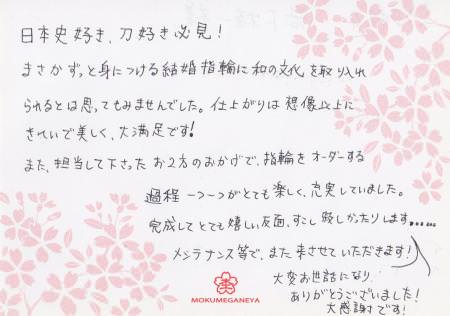 日本史好き、刀好き必見！
まさかずっと身につける結婚指輪に和の文化を取り入れ
られるとは思ってもみませんでした。仕上がりは想像以上に
きれいで美しく、大満足です！
また、担当して下さったお2方のおかげで、指輪をオーダーする
過程一つ一つがとても楽しく、充実していました。
完成してとても嬉しい反面、すこし寂しかったりします……
メンテナンス等で、また来させていただきます！
大変お世話になり
ありがとうございました！
大感謝です！
MOKUMEGANEYA